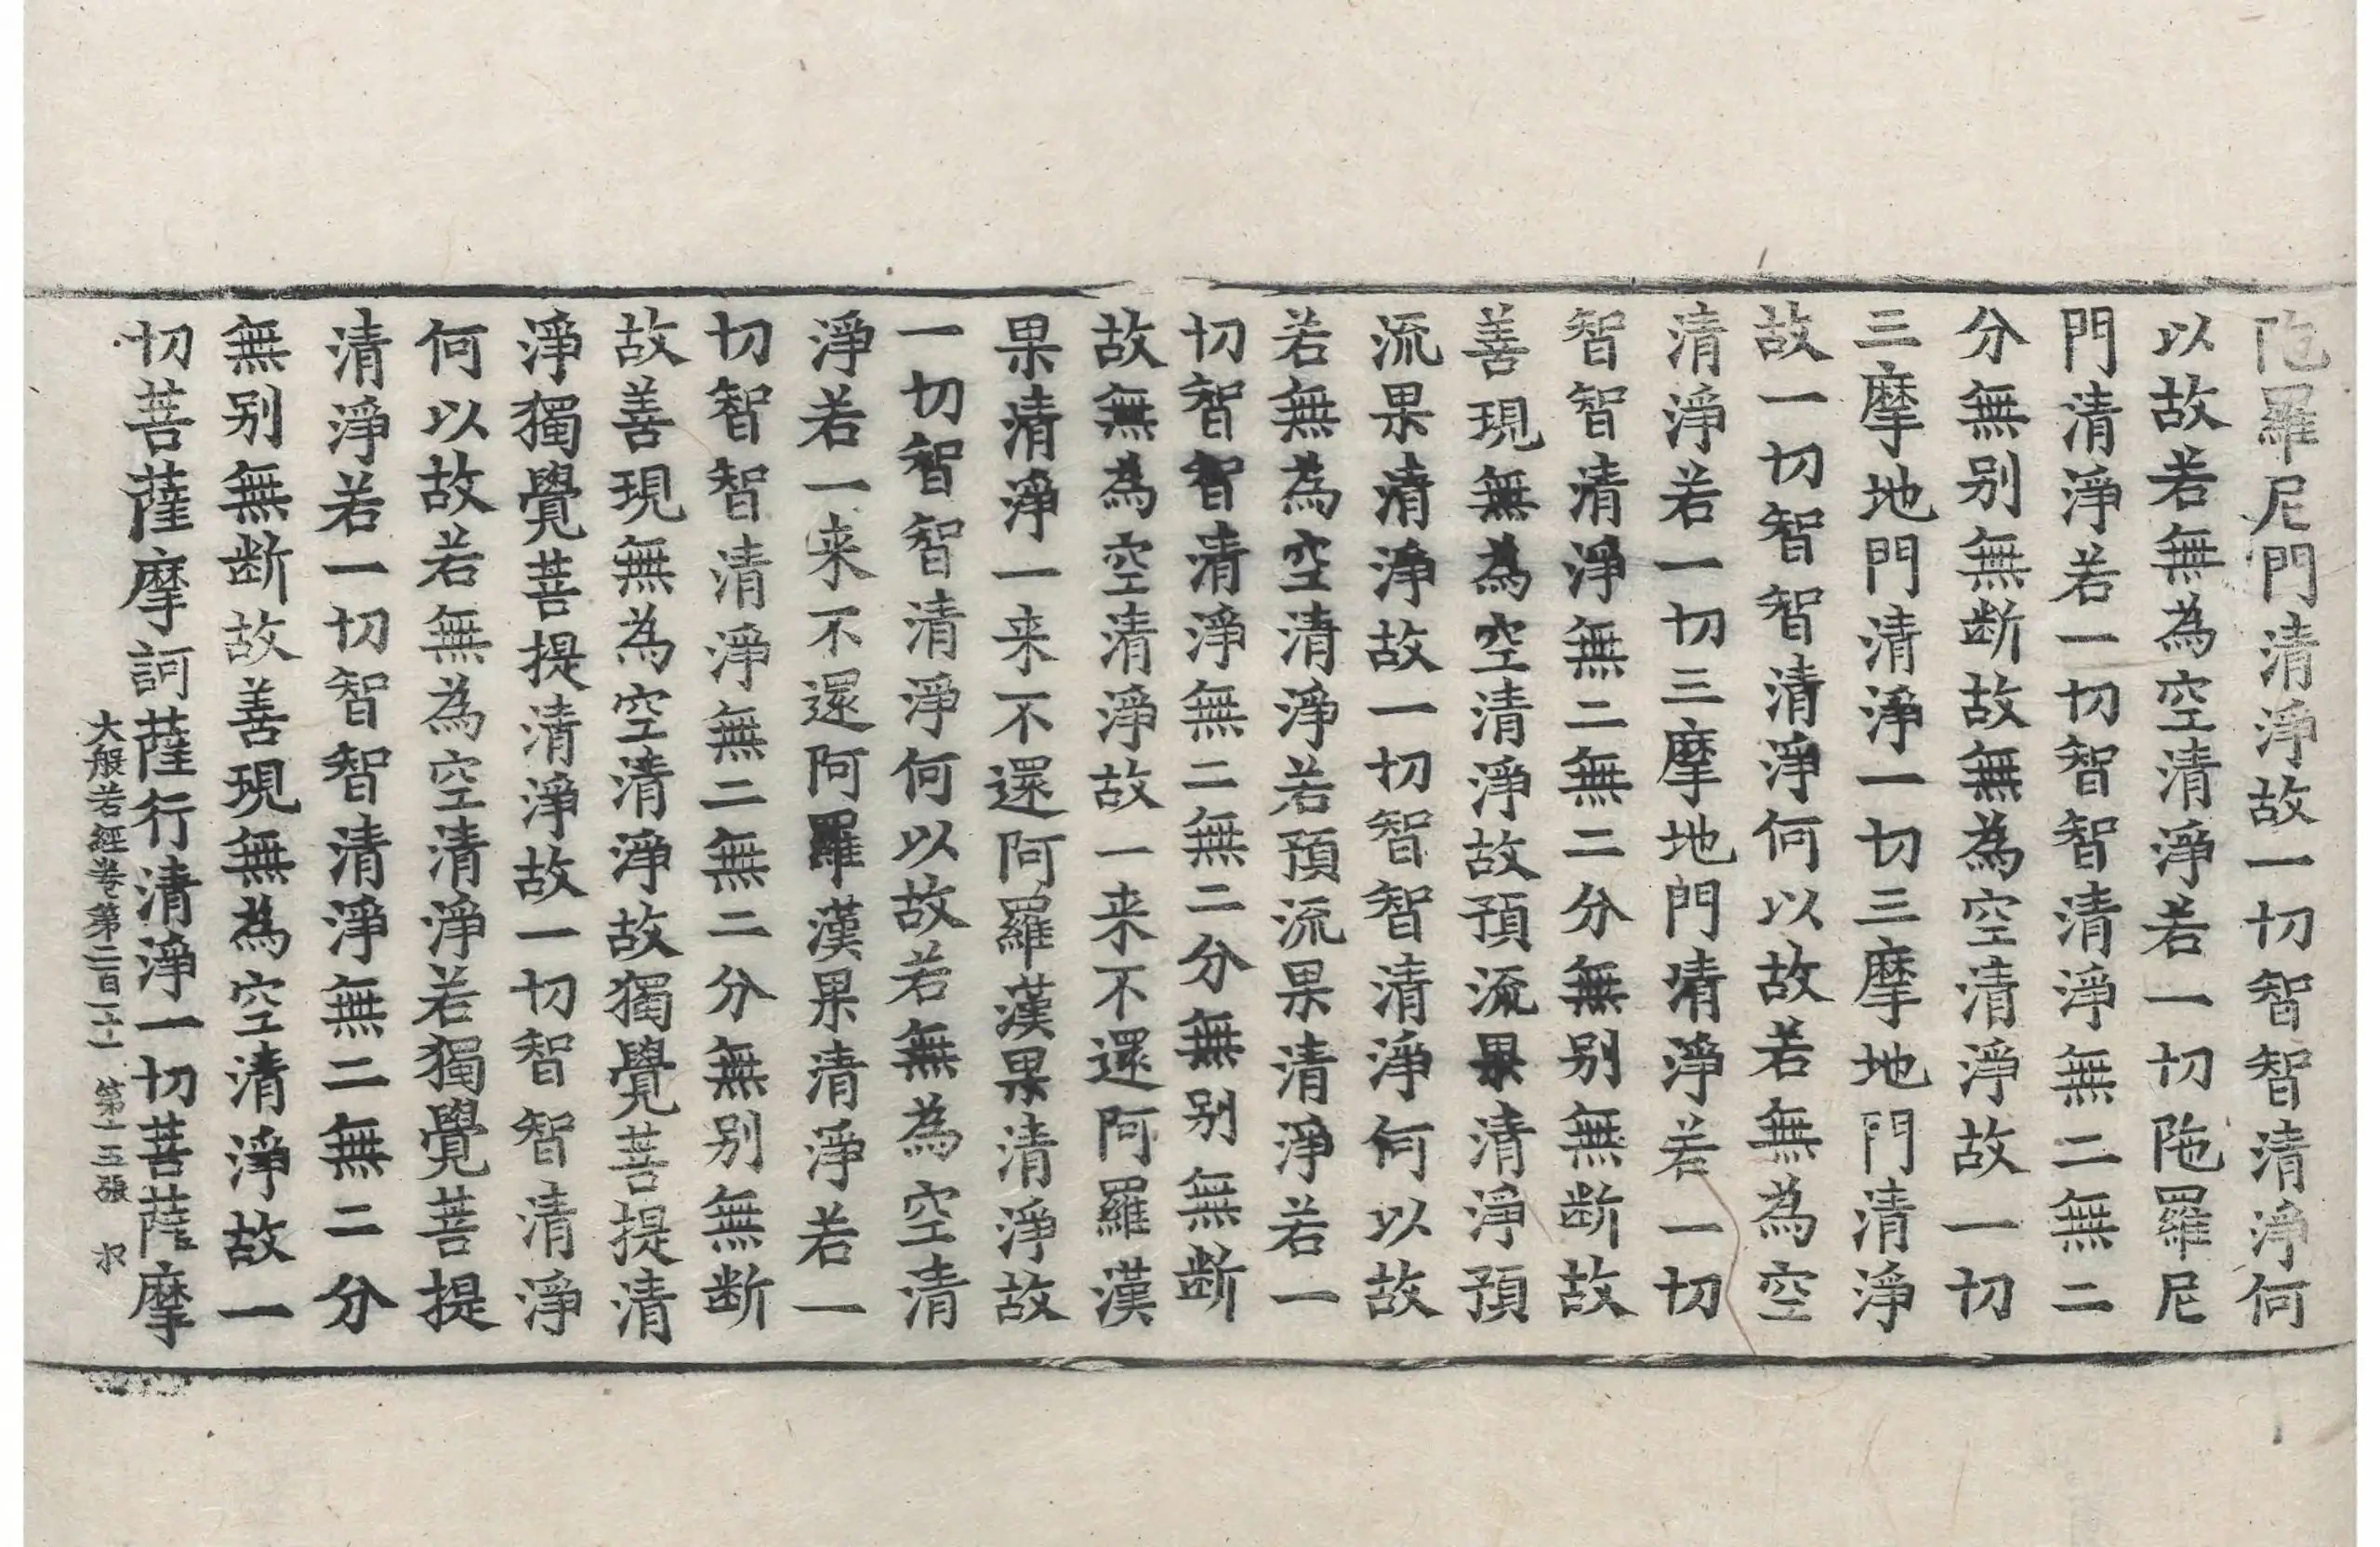 陁羅尼門清淨故一切智智清淨何
以故若無為空清淨若一切陁羅尼
門清淨若一切智智清淨無二無二
分無别無断故無為空清淨故一切
三摩地門清淨一切三摩地門清淨
故一切智智清淨何以故若無為空
清淨若一切三摩地門清淨若一切
智智清淨無二無二分無别無断故
善現無為空清淨故預流果清淨預
流果清淨故一切智智清淨何以故
若無為空清淨若預流果清淨若一
切智智清淨無二無二分無别無断
故無為空清淨故一来不還阿羅漢
果清淨一来不還阿羅漢果清淨故
一切智智清淨何以故若無為空清
淨若一来不還阿羅漢果清淨若一
切智智清淨無二無二分無别無断
故善現無為空清淨故獨覺菩提清
淨獨覺菩提清淨故一切智智清淨
何以故若無為空清淨若獨覺菩提
清淨若一切智智清淨無二無二分
無别無断故善現無為空清淨故一
切菩薩摩訶薩行清淨一切菩薩摩
大般若經卷第二百 第十五張